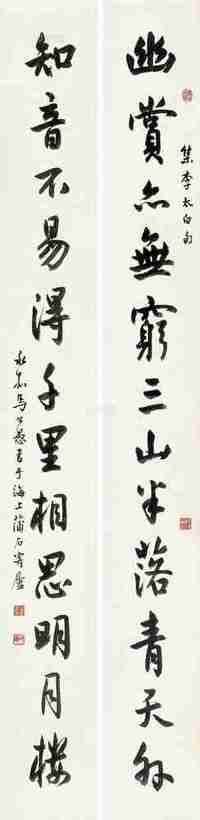 集李太白句
幽賞亦無窮三山半落青天外
知音不易得千里相思明月樓
永嘉馬公愚書于海上蒲石寄廬